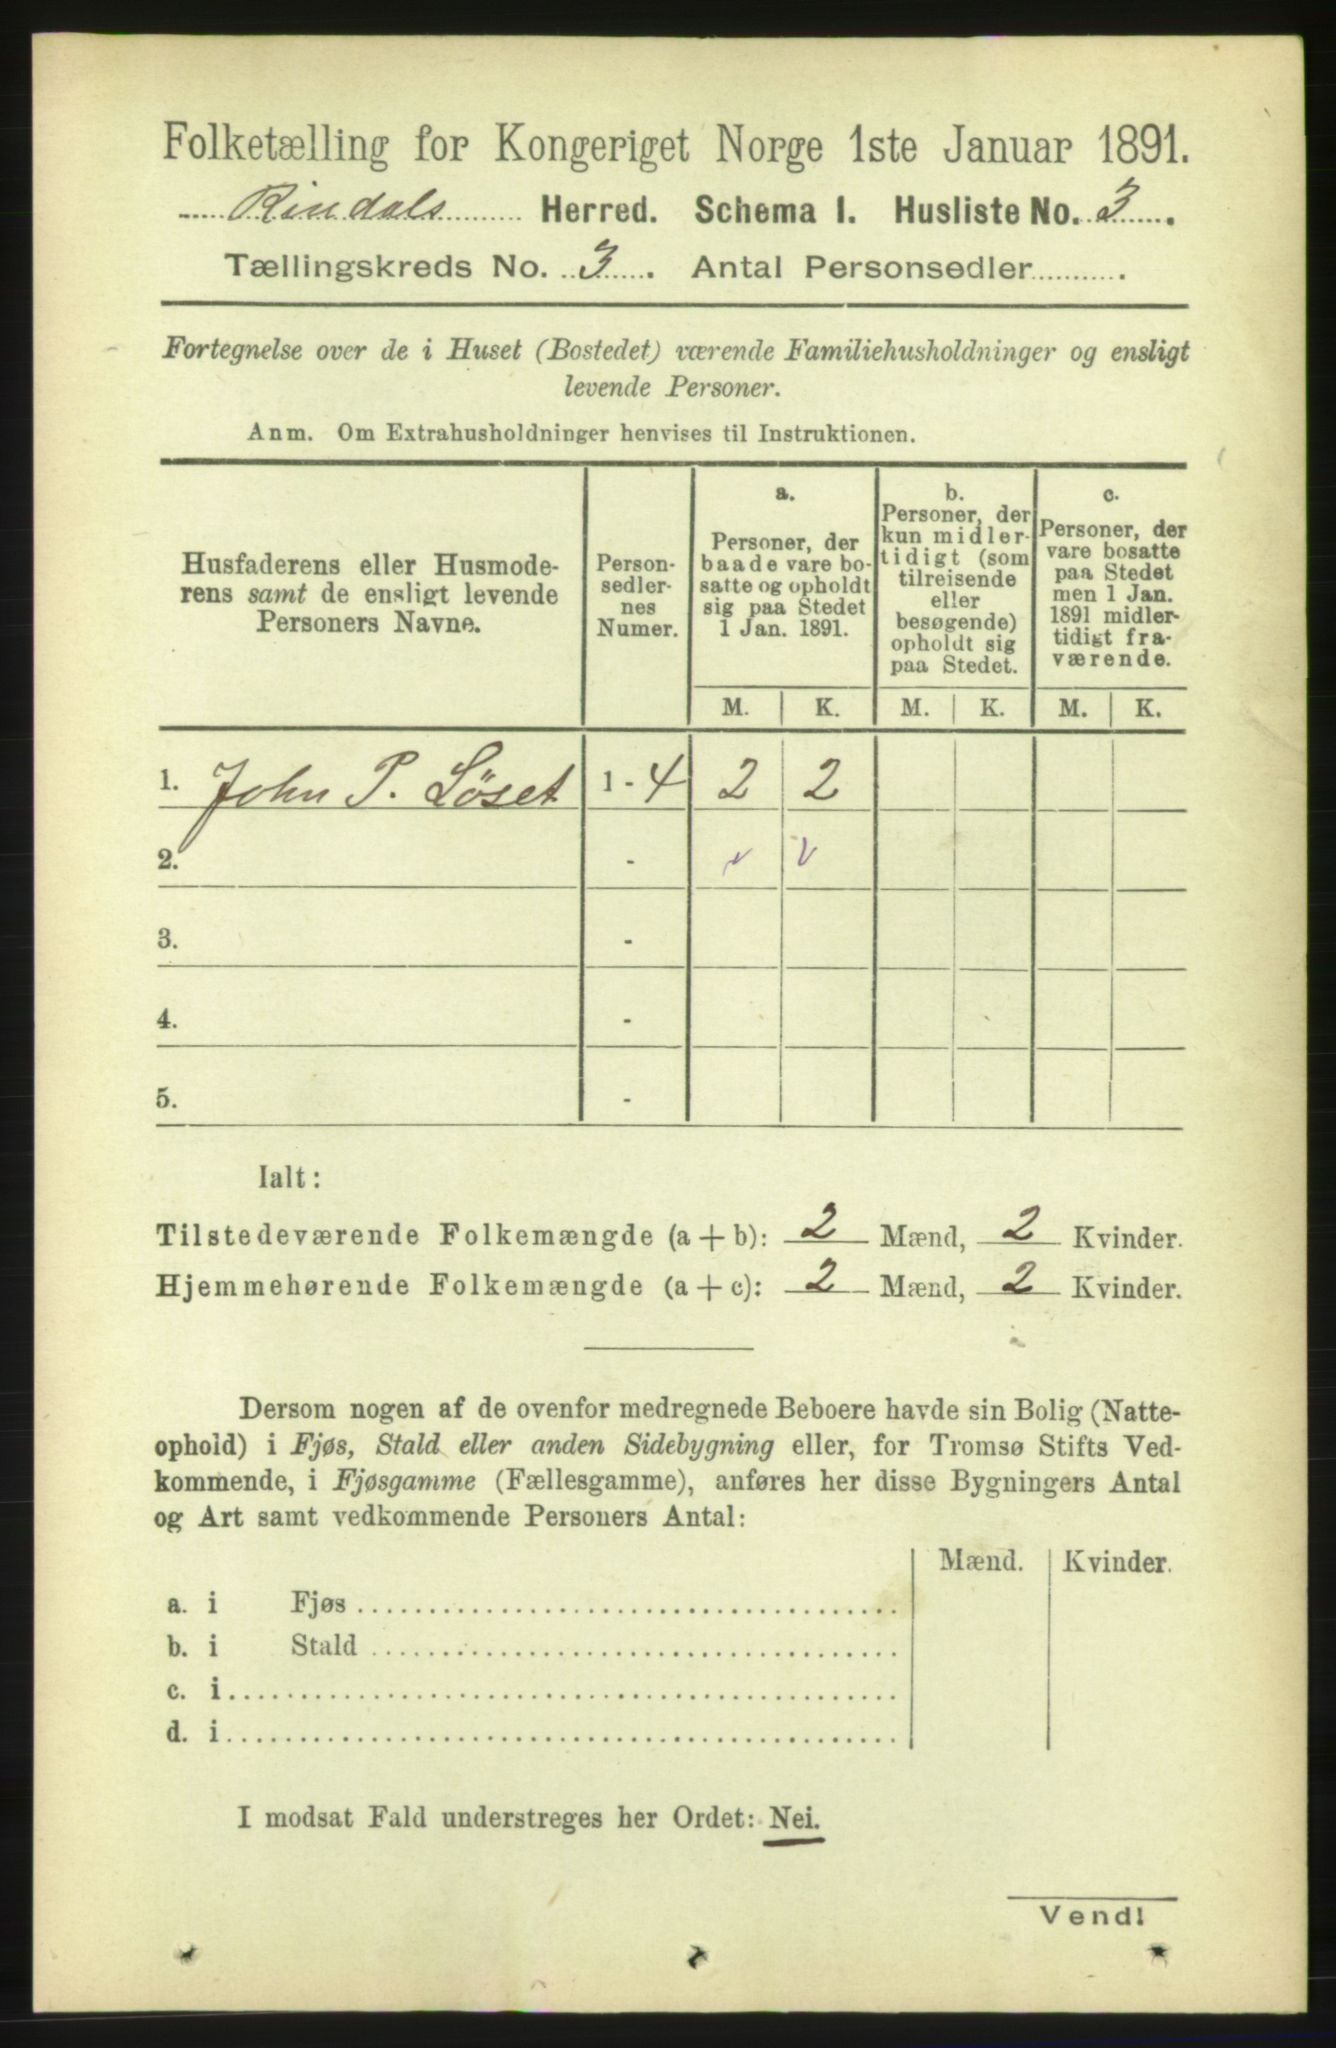 Folketælling for Kongeriget Norge 1ste Januar 1891.
Rindals Herred. Schema I. Husliste No. 3.
Tællingskreds No. 3. Antal Personsedler
Fortegnelse over de i Huset (Bostedet) værende Familiehusholdninger og ensligt
levende Personer.
Anm. Om Extrahusholdninger henvises til Instruktionen.
Husfaderens eller Husmode-
rens samt de ensligt levende
Personers Navne.
Person-
sedler-
nes
Numer.
a.
Personer, der
baade vare bo-
satte og opholdt
sig paa Stedet
1 Jan. 1891.
b.
Personer, der
kun midler-
tidigt (som
tilreisende
eller
besøgende)
opholdt sig
paa Stedet.
c.
Personer, der
vare bosatte
paa Stedet
men 1 Jan.
1891 midler-
tidigt fra-
værende.
M. K. M. K. M. K.
1. John P. Løset 1 - 4 2 2
2. -
3. -
4. -
5. -
Ialt:
Tilstedeværende Folkemængde (a + b): 2 Mænd, 2 Kvinder.
Hjemmehørende Folkemængde (a + c): 2 Mænd, 2 Kvinder.
Dersom nogen af de ovenfor medregnede Beboere havde sin Bolig (Natte-
ophold) i Fjøs, Stald eller anden Sidebygning eller, for Tromsø Stifts Ved-
kommende, i Fjøsgamme (Fællesgamme), anføres her disse Bygningers Antal
og Art samt vedkommende Personers Antal:
Mænd. Kvinder.
a. i Fjøs
b. i Stald
c. i
d. i
I modsat Fald understreges her Ordet: Nei.
Vend!